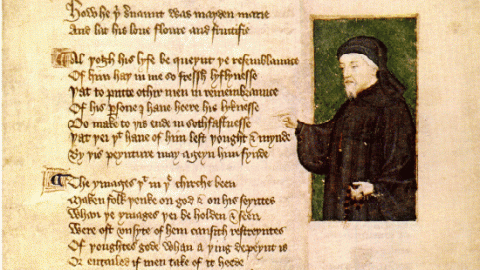 How he þͥ seruaunt was mayden marie
And lat his loue floure and fructifie
Al þogh his lyfe be queynt þe resemblaunce
Of him haþ in me so fressh lyflynesse
Þat to putte othir men in remembraunce
Of his ꝑsone I haue heere his lyknesse
Do make to þis ende in sothfastnesse
Þat þei þͭ haue of him lest þought & mynde
By þis peynture may ageyn him fynde
The ymages þͭ in þͤ chirche been
Maken folk þenke on god & on his seyntes
Whan þe ymages þei beholden & seen
Were oft vnsyte of hem causith restreyntes
Of þoughtes gode whan a þing depeynt is
Or entailed if men take of it heede